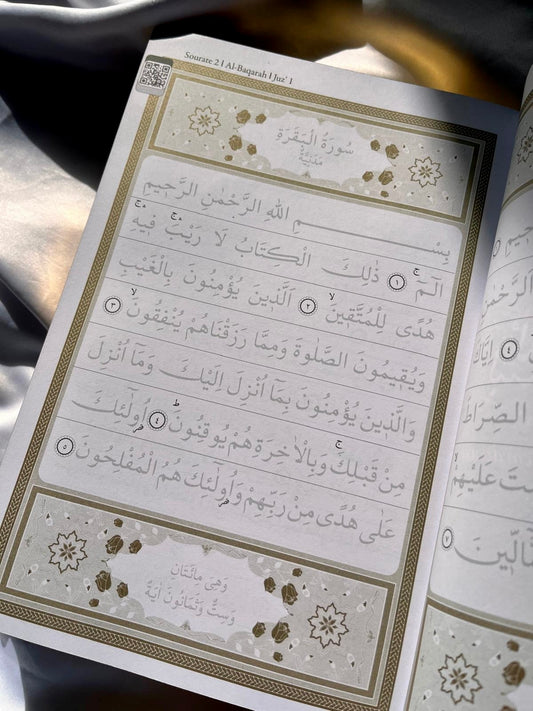 Sourate 2 I Al-Baqarah I Juz' 1
سُورَةُ الْبَقَرَةِ
مَدَنِيَّةٌ
بِسْمِ اللهِ الرَّحْمٰنِ الرَّحٖيمِ
الٓمٓ ﴿١﴾ ذٰلِكَ الْكِتَابُ لَا رَيْبَ فٖيهِ
هُدًى لِلْمُتَّقٖينَ ﴿٢﴾ اَلَّذٖينَ يُؤْمِنُونَ بِالْغَيْبِ
وَيُقٖيمُونَ الصَّلٰوةَ وَمِمَّا رَزَقْنَاهُمْ يُنْفِقُونَ ﴿٣﴾
وَالَّذٖينَ يُؤْمِنُونَ بِمَٓا اُنْزِلَ اِلَيْكَ وَمَٓا اُنْزِلَ
مِنْ قَبْلِكَ وَبِالْاٰخِرَةِ هُمْ يُوقِنُونَ ﴿٤﴾ اُولٰٓئِكَ
عَلٰى هُدًى مِنْ رَبِّهِمْ وَاُولٰٓئِكَ هُمُ الْمُفْلِحُونَ ﴿٥﴾
وَهِىَ مِائَتَانِ
وَسِتٌّ وَثَمَانُونَ اٰيَةً
الصِّرَاطَ
عَلَيْهِمْ